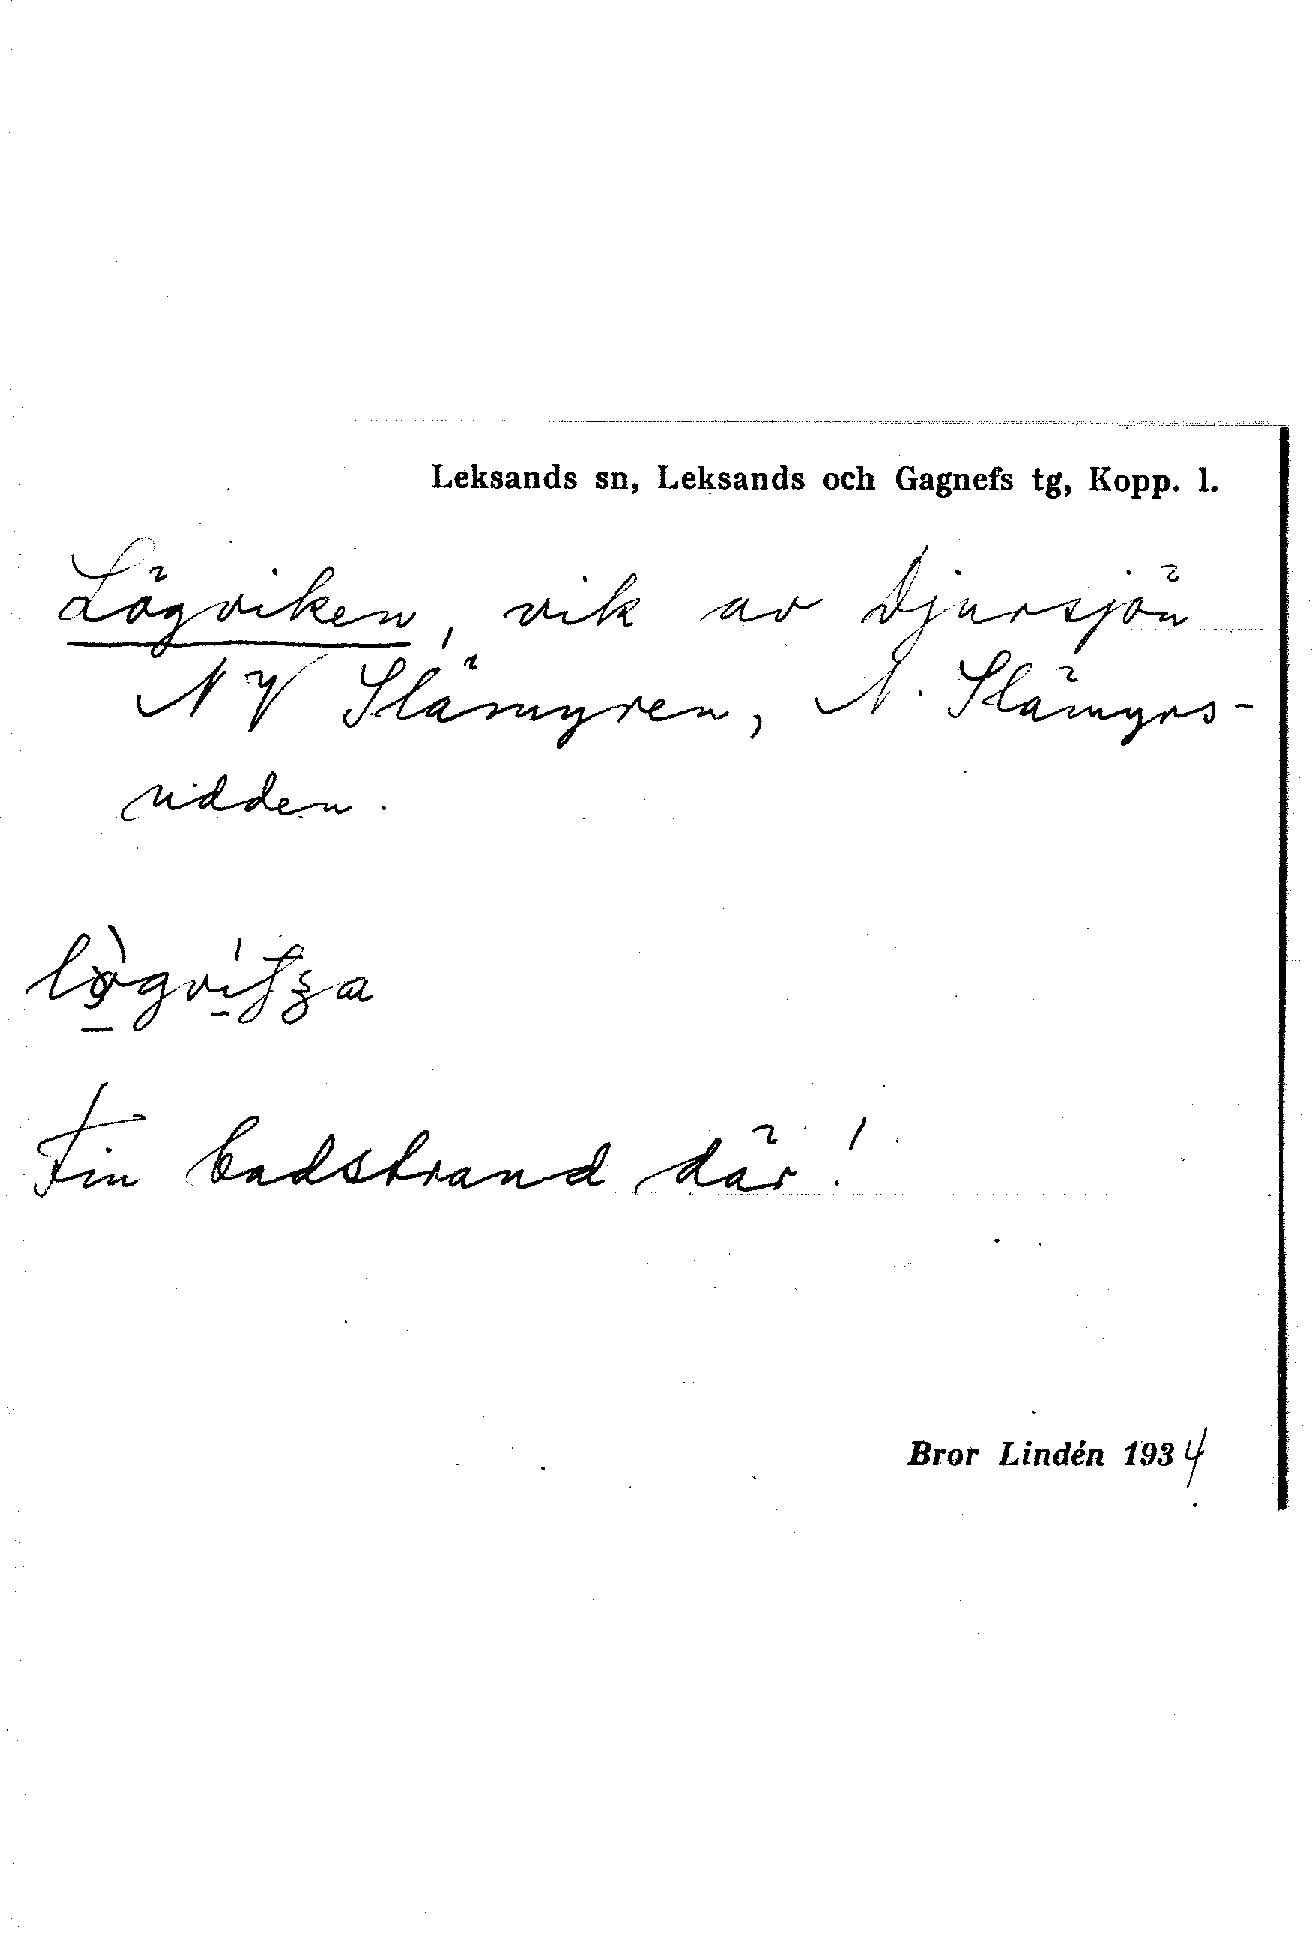 Leksands sn, Leksands och Gagnefs tg, Kopp. l.
Lögviken, vik av Djursjön
NV Slämyren, N. Slämyrs-
udden.
Fin badstrand där!
Bror Lindén 1934